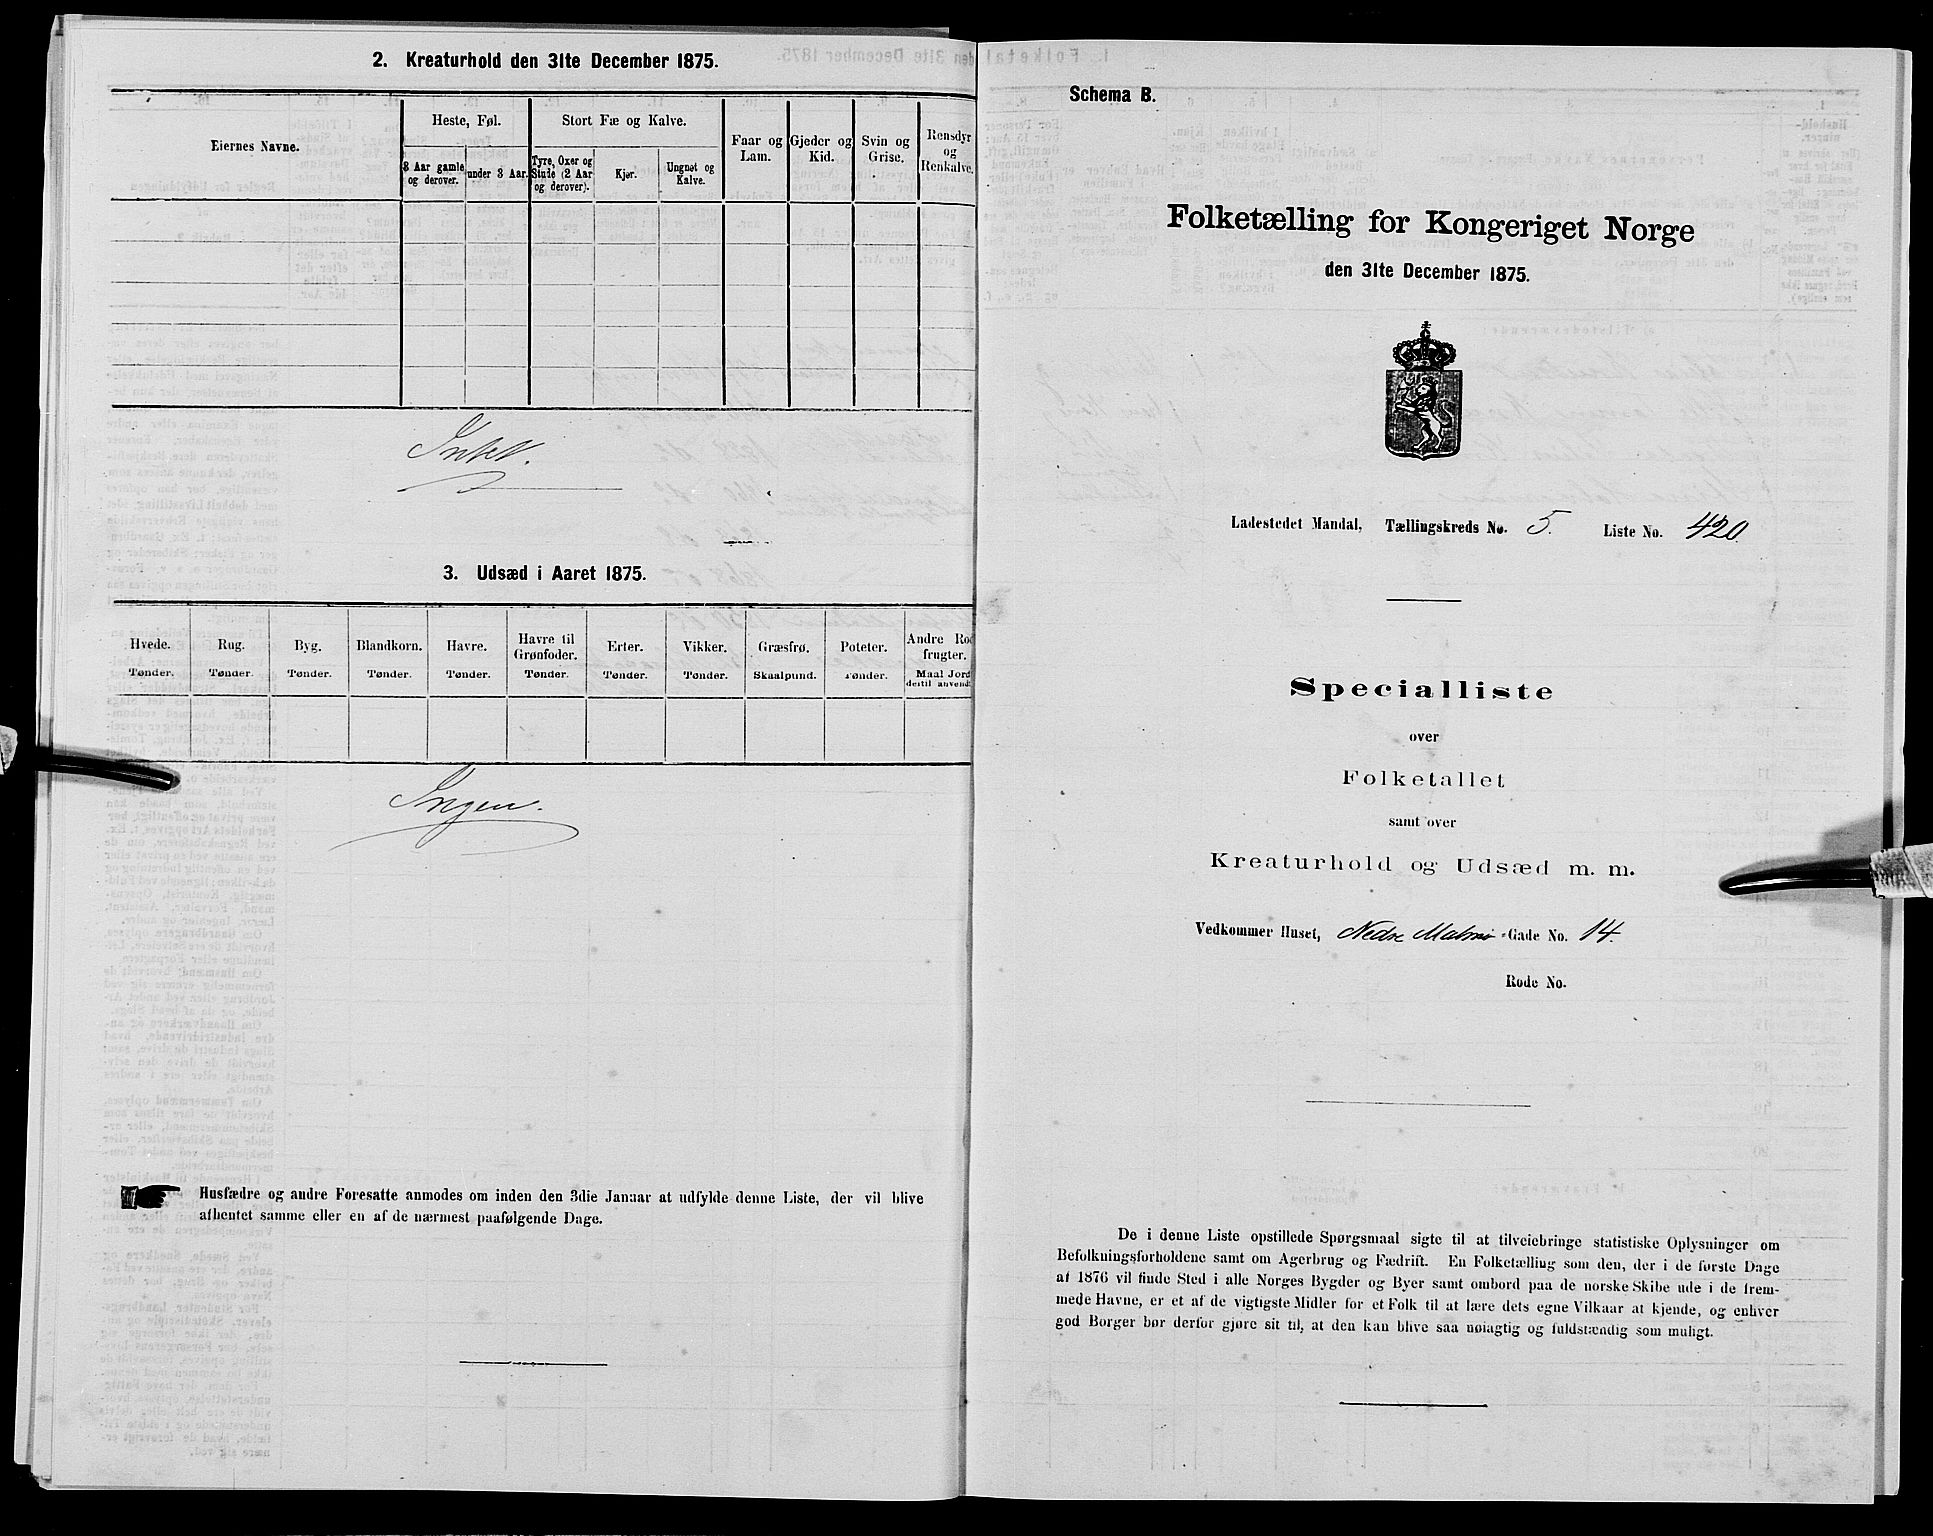 2. Kreaturhold den 31te December 1875.
Eiernes Navne.
Heste, Føl.
3 Aar gamle og derover.
under 3 Aar.
Stort Fæ og Kalve.
Tyre, Oxer og Stude (2 Aar og derover).
Kjør.
Ungnøt og Kalve.
Faar og Lam.
Gjeder og Kid.
Svin og Grise.
Rensdyr og Renkalve.
Intet.
3. Udsæd i Aaret 1875.
Hvede. Rug. Byg. Blandkorn. Havre. Havre til Grønfoder. Erter. Vikker. Græsfrø. Poteter. Andre Rodfrugter.
Tønder. Tønder. Tønder. Tønder. Tønder. Tønder. Tønder. Tønder. Skaalpund. Tønder. Maal Jord dertil anvendt
Ingen.
Husfædre og andre Foresatte anmodes om inden den 3die Januar at udfylde denne Liste, der vil blive
afhentet samme eller en af de nærmest paafølgende Dage.
Schema B.
Folketælling for Kongeriget Norge
den 31te December 1875.
Ladestedet Mandal, Tællingskreds No. 5. Liste No. 420.
Specialliste
over
Folketallet
samt over
Kreaturhold og Udsæd m. m.
Vedkommer Huset, Nedre Malmø-Gade No. 14.
Rode No.
De i denne Liste opstillede Spørgsmaal sigte til at tilveiebringe statistiske Oplysninger om
Befolkningsforholdene samt om Agerbrug og Fædrift. En Folketælling som den, der i de første Dage
af 1876 vil finde Sted i alle Norges Bygder og Byer samt ombord paa de norske Skibe ude i de frem-
mede Havne, er et af de vigtigste Midler for et Folk til at lære dets egne Vilkaar at kjende, og enhver
god Borger bør derfor gjøre sit til, at den kan blive saa nøiagtig og fuldstændig som muligt.